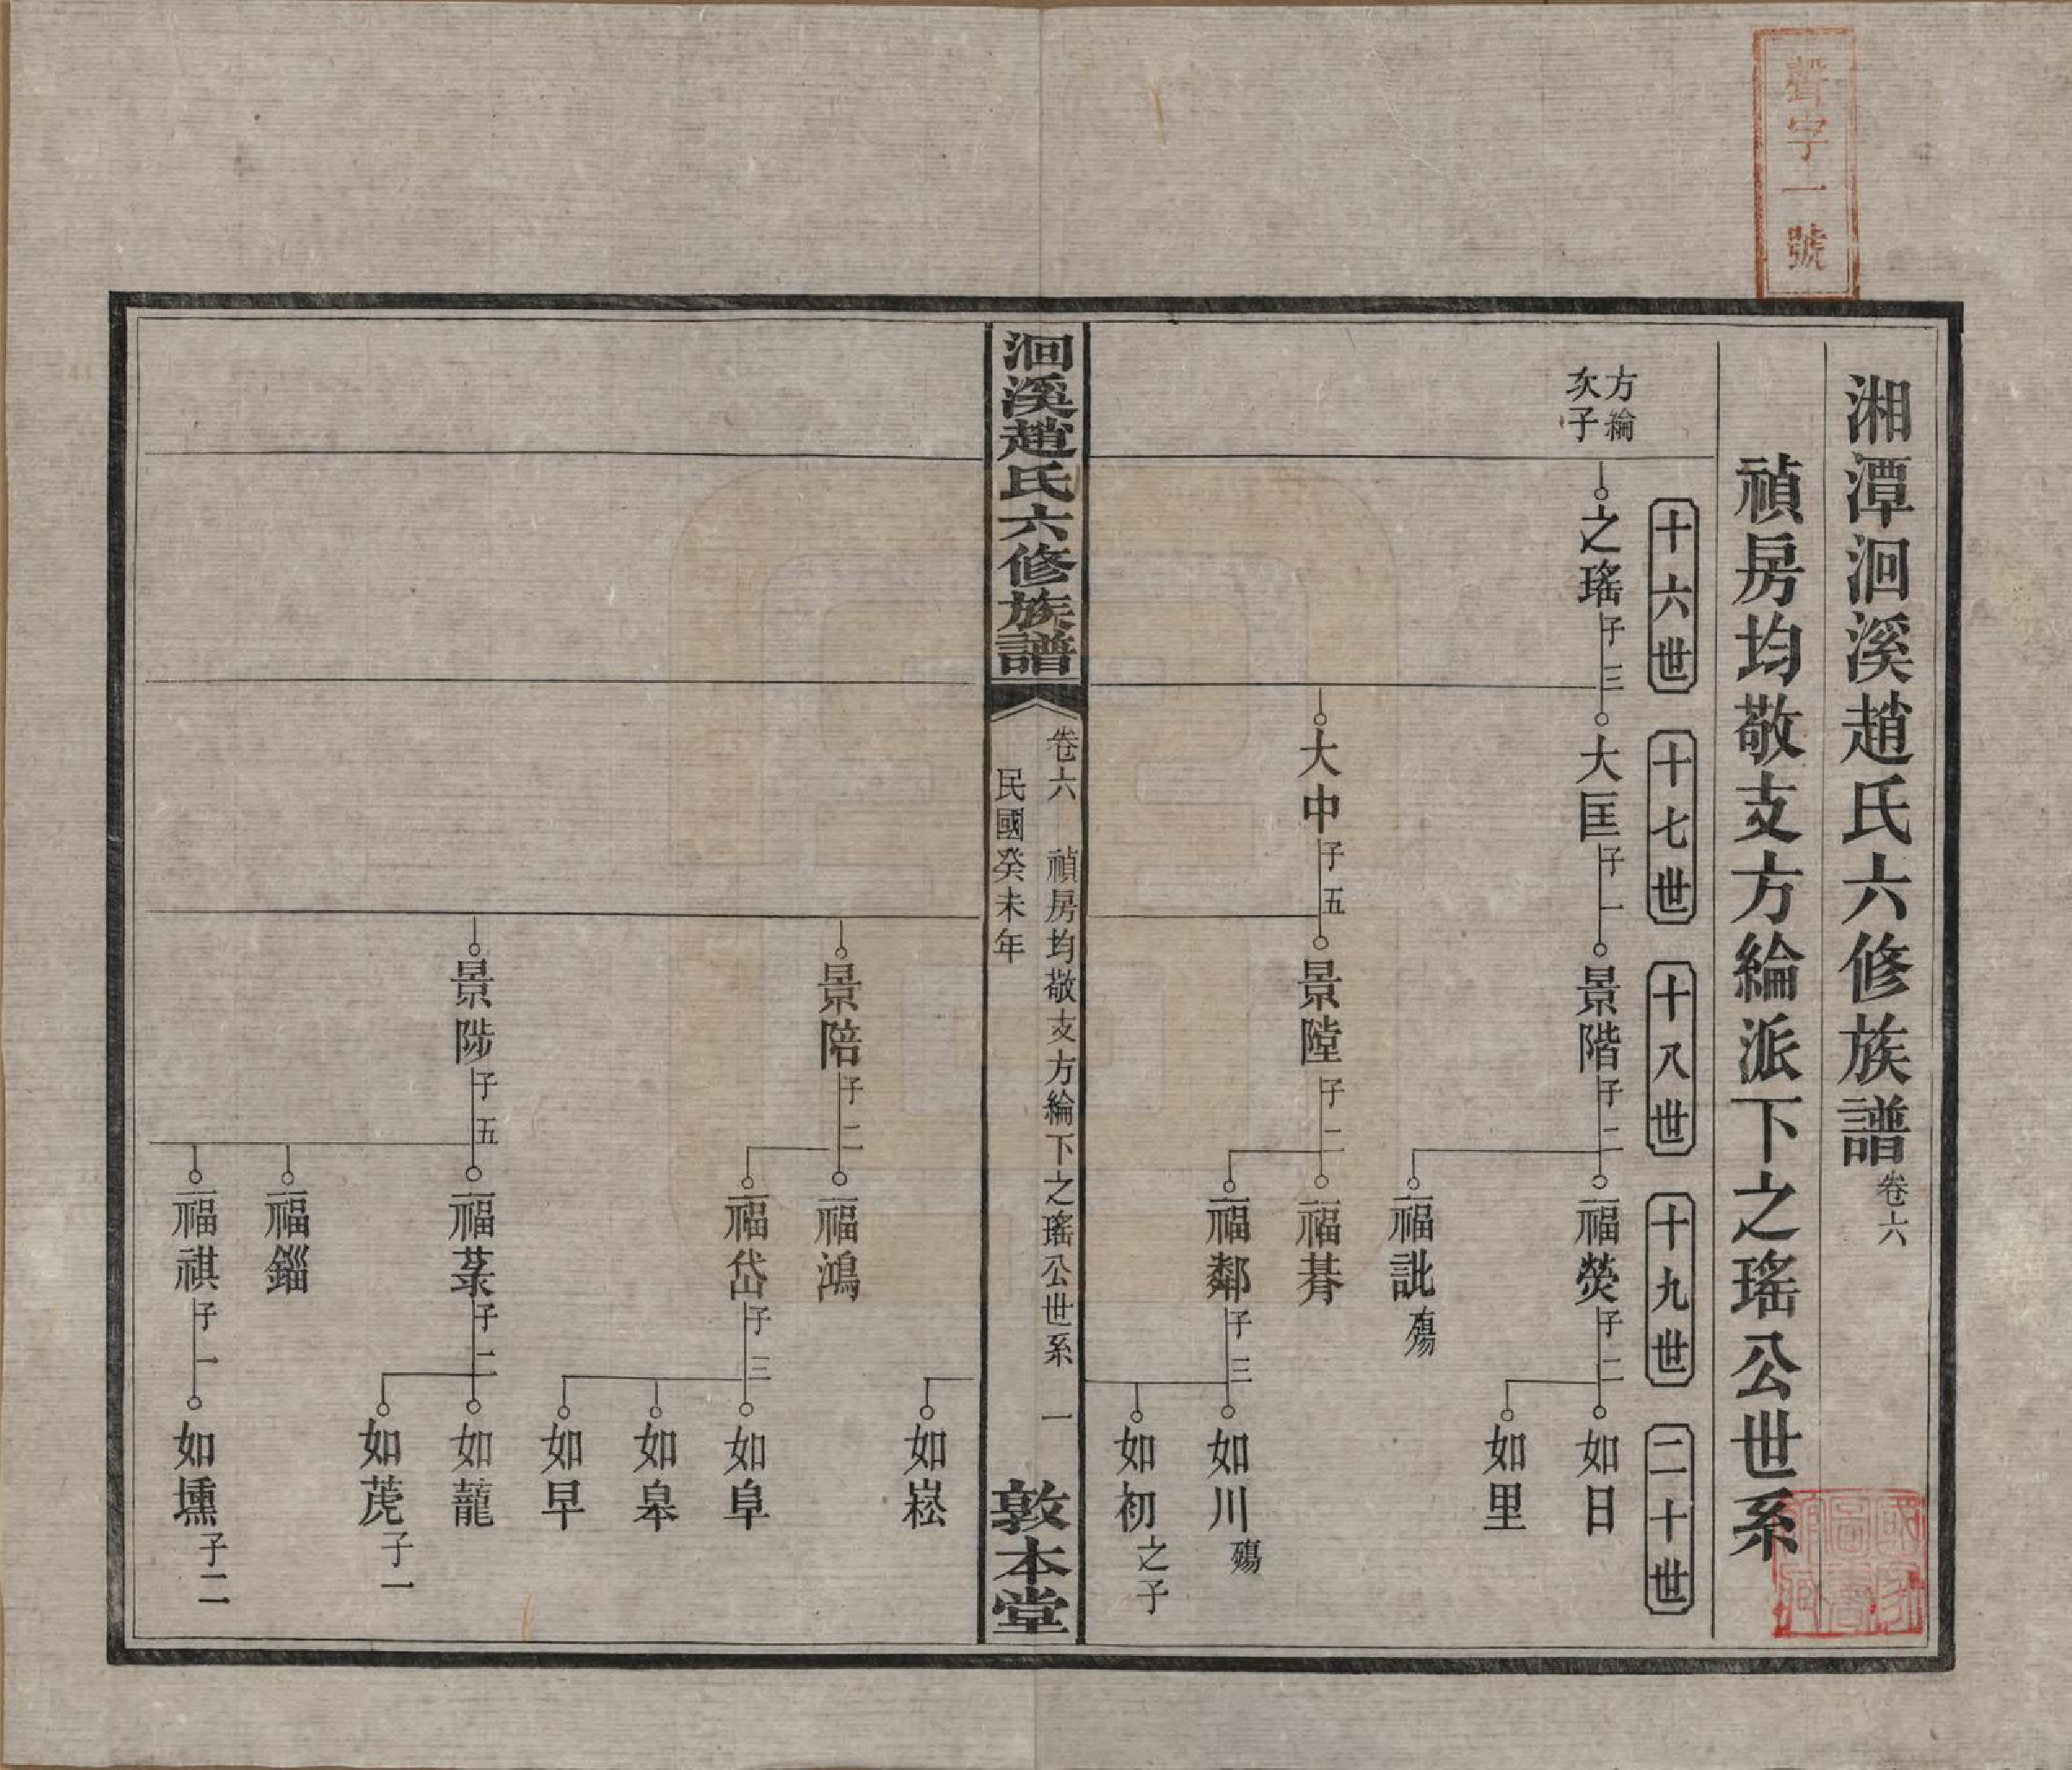 聲字一號
湘潭洄溪趙氏六修族譜卷六
禎房均敬支方綸派下之瑤公世系
十六世
十七世
十八世
十九世
二十世
方綸
次子
之瑤子三
大匡子一
景階子二
福熒子二
如日
如里
福訿殤
大中子五
景隚子二
福朞
福鄰子三
如川殤
如初之子
洄溪趙氏六修族譜
卷六 禎房均敬支方綸下之瑤公世系 一
民國癸未年
敦本堂
如崧
景陪子二
福鴻
福岱子三
如阜
如皋
如早
景陟子五
福菉子二
如蘢
如萀子一
福錙
福祺子一
如壎子二